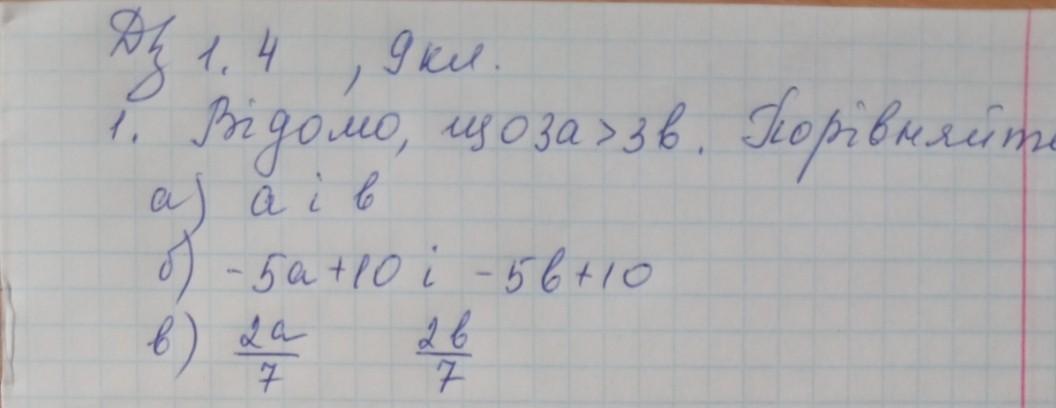 Дз 1.4 , 9 кл.
1. Відомо, що 3а > 3в. Порівняйте
а) а і в
б) -5а + 10 і -5в + 10
в) 2а/7 2в/7